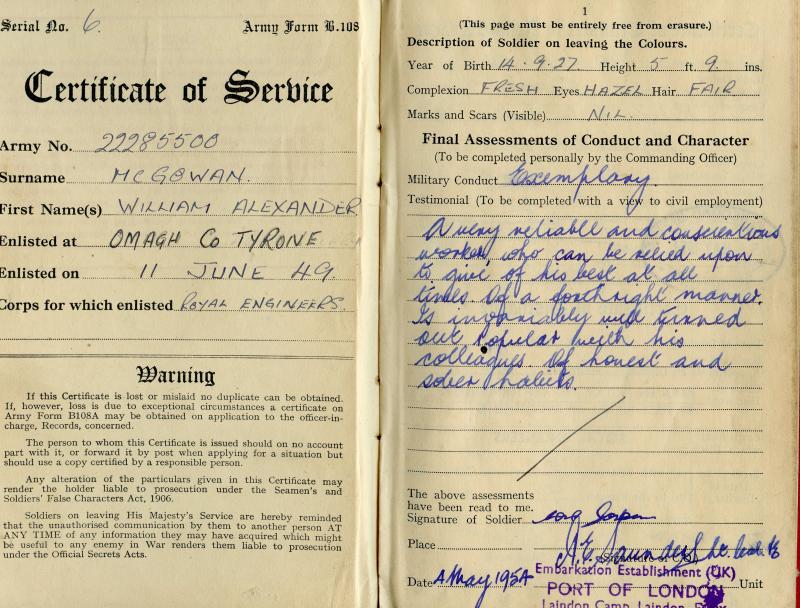 Serial No. 6. Army Form B.108
Certificate of Service
Army No. 22285500
Surname McGOWAN.
First Name(s) WILLIAM ALEXANDER
Enlisted at OMAGH Co TYRONE
Enlisted on 11 JUNE 49.
Corps for which enlisted ROYAL ENGINEERS.
Warning
If this Certificate is lost or mislaid no duplicate can be obtained.
If, however, loss is due to exceptional circumstances a certificate on
Army Form B108A may be obtained on application to the officer-in-
charge, Records, concerned.
The person to whom this Certificate is issued should on no account
part with it, or forward it by post when applying for a situation but
should use a copy certified by a responsible person.
Any alteration of the particulars given in this Certificate may
render the holder liable to prosecution under the Seamen's and
Soldiers' False Characters Act, 1906.
Soldiers on leaving His Majesty's Service are hereby reminded
that the unauthorised communication by them to another person AT
ANY TIME of any information they may have acquired which might
be useful to any enemy in War renders them liable to prosecution
under the Official Secrets Acts.
1
(This page must be entirely free from erasure.)
Description of Soldier on leaving the Colours.
Year of Birth 14.9.27. Height 5 ft. 9. ins.
Complexion FRESH Eyes HAZEL Hair FAIR
Marks and Scars (Visible) NIL.
Final Assessments of Conduct and Character
(To be completed personally by the Commanding Officer)
Military Conduct Exemplary.
Testimonial (To be completed with a view to civil employment)
A very reliable and conscientious
worker, who can be relied upon
to give of his best at all
times. Of a forthright manner.
Is invariably well turned
out. Popular with his
colleagues. Of honest and
sober habits.
The above assessments
have been read to me.
Signature of Soldier
Place J.E. Saunders
Embarkation Establishment (UK)
Date 4 May 1954 PORT OF LONDON Unit
Laindon Camp, Laindon, Essex